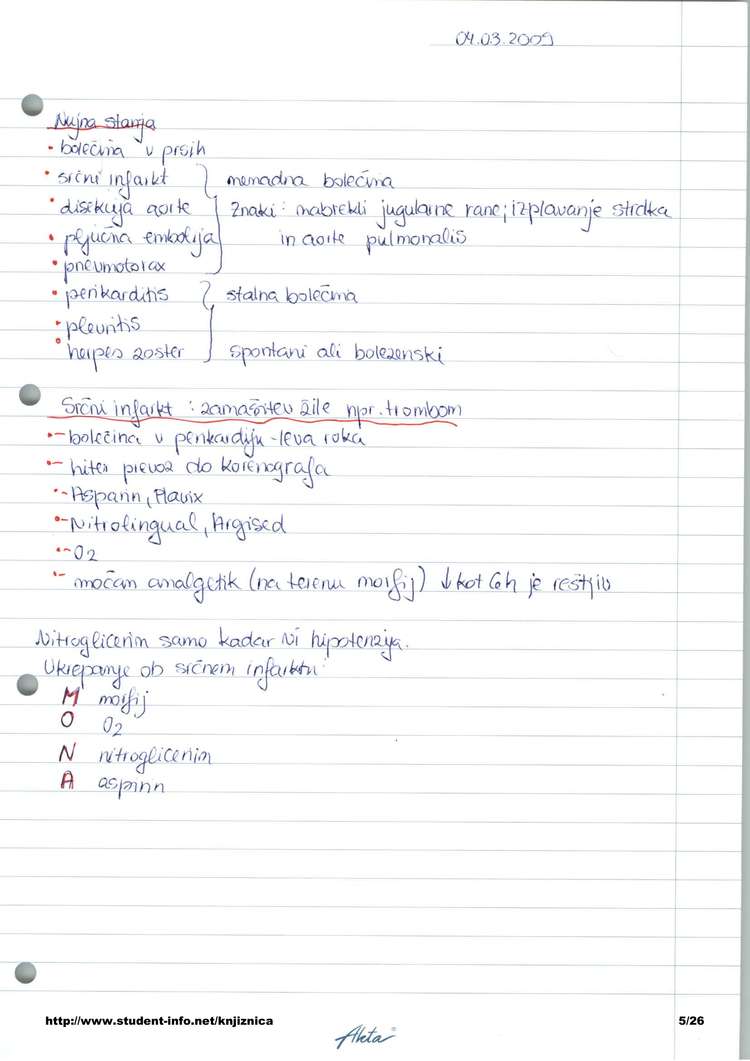 04.03.2009
Nujna stanja
• bolečina v prsih
• srčni infarkt } nenadna bolečina
• disekcija aorte Znaki: nabrekli jugularne rane; izplavanje strdka
• pljučna embolija in aorte pulmonalis
• pneumotorax
• perikarditis } stalna bolečina
• pleuritis
• herpes zoster spontani ali bolezenski
Srčni infarkt : zamašitev žile npr. trombom
•- bolečina v perikardiju - leva roka
•- hiter prevoz do korenografa
•- Aspirin, Plavix
•- Nitrolingual, Argised
•- O2
•- močan analgetik (na terenu morfij) ↓ kot je
Nitroglicerin samo kadar ni hipotenzija.
Ukrepanje ob srčnem infarktu:
M morfij
O O2
N nitroglicerin
A aspirin
http://www.student-info.net/knjiznica
5/26
Aleta